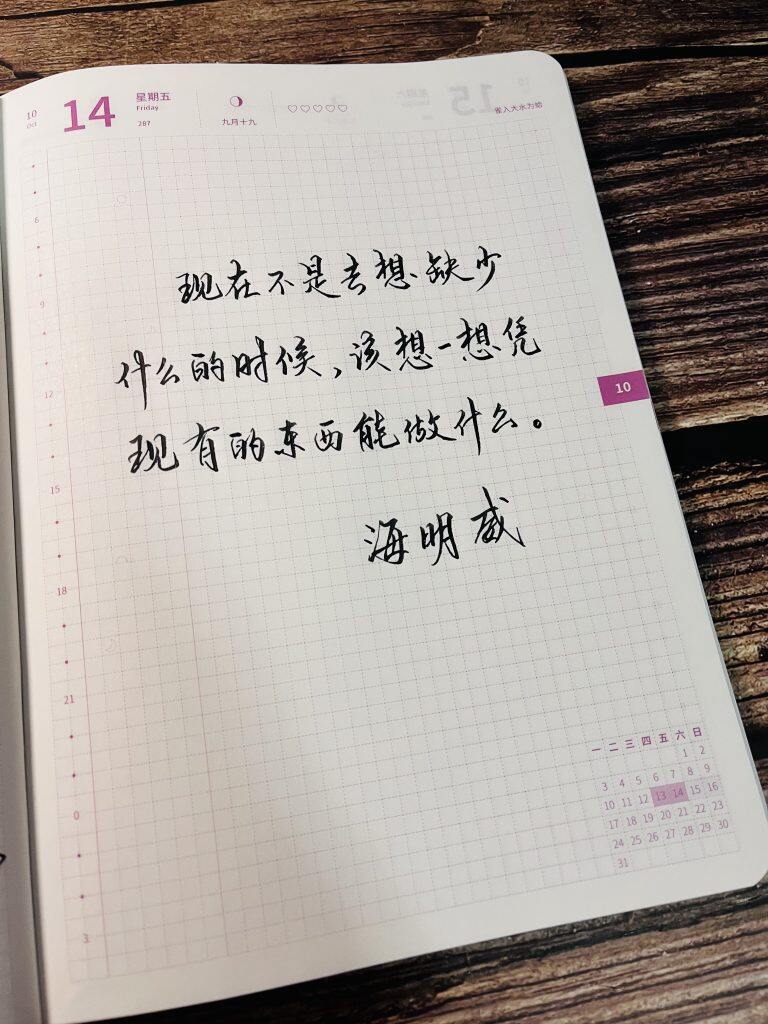 10 14 星期五 九月十九 ♡♡♡♡♡ 15
Oct Friday 287 雀入大水为蛤
6
9
12
15
18
21
0
3
现在不是去想缺少
什么的时候,该想一想凭
现有的东西能做什么。
海明威
10
一 二 三 四 五 六 日
1 2
3 4 5 6 7 8 9
10 11 12 13 14 15 16
17 18 19 20 21 22 23
24 25 26 27 28 29 30
31